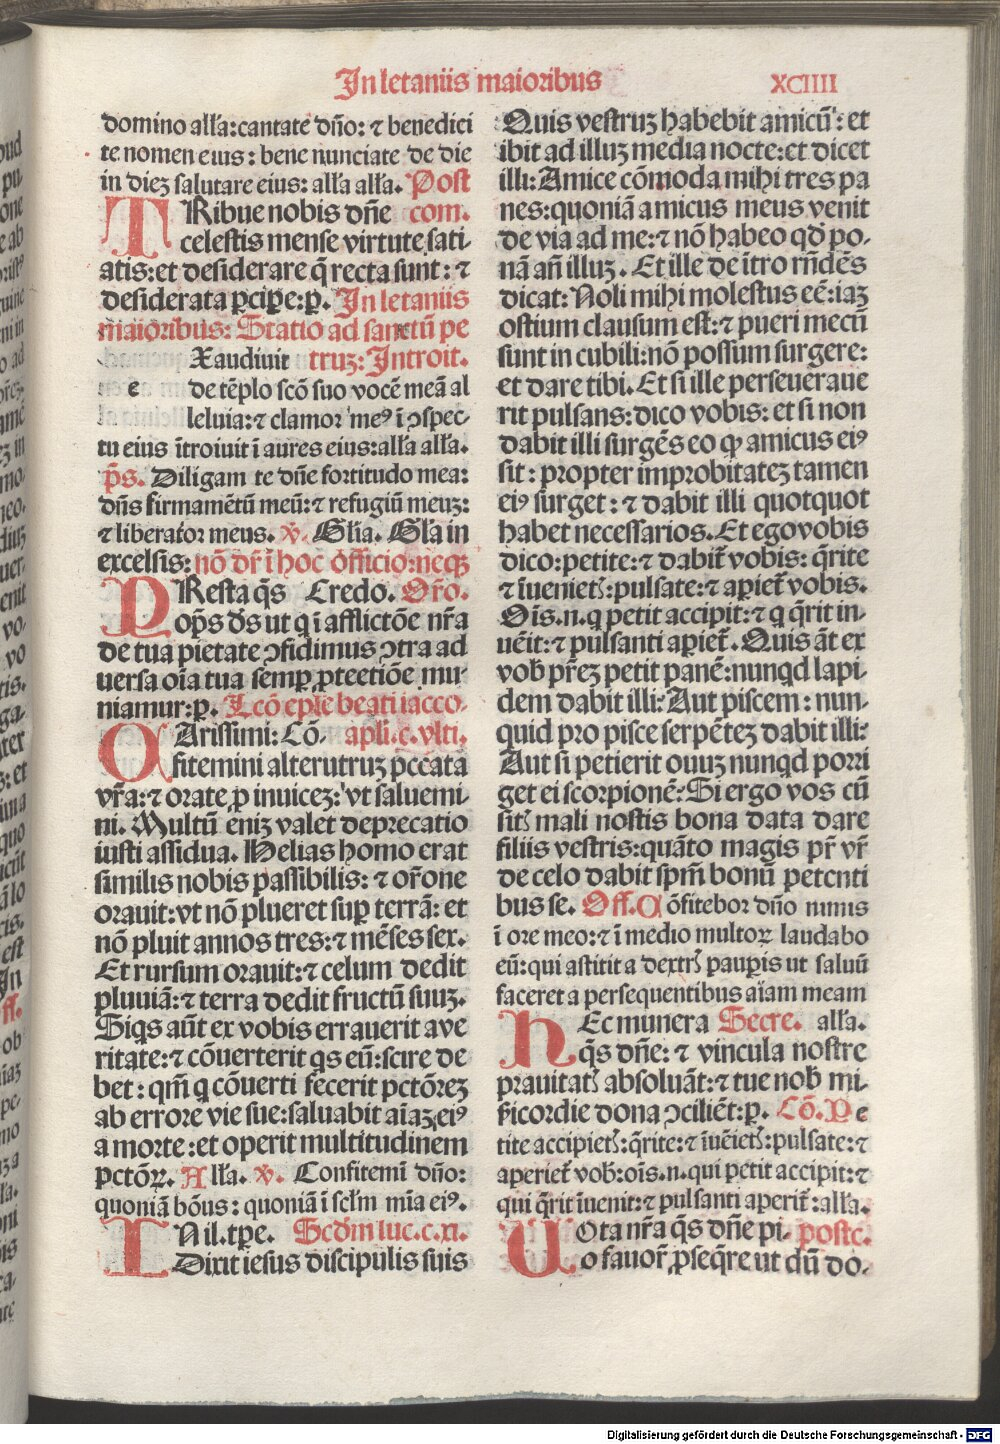 In letaniis maioribus
XCIIII
domino alľa: cantate dño: ⁊ benedici
te nomen eius: bene nunciate de die
in dieꝫ salutare eius: alľa alľa. Post
TRibue nobis dñe com.
celestis mense virtute sati-
atis: et desiderare q̃ recta sunt: ⁊
desiderata ꝑciꝑe: ꝑ. In letaniis
maioribus: Statio ad sanctũ pe
Xaudiuit truꝫ: Introit.
e de tẽplo scõ suo vocẽ meã al
leluia: ⁊ clamor meꝰ ĩ ↄspec-
tu eius ĩtroiuit ĩ aures eius: alľa alľa.
p̃s. Diligam te dñe fortitudo mea:
dñs firmamẽtũ meũ: ⁊ refugiũ meuꝫ:
⁊ liberator meus. ℣. Glia. Gľa in
excelsis: nõ dř ĩ hoc officio: neqꝫ
PResta q̃s Credo. Ořo.
opš ds̃ ut q ĩ afflictõe nřa
de tua pietate ↄfidimus ↄtra ad
uersa oĩa tua semꝑ ꝓtectiõe mu-
niamur: ꝑ. Lcõ epľe beati iacco-
OArissimi: Cõ- apľi. c. vlti.
fitemini alterutruꝫ pccata
vřa: ⁊ orate ꝓ inuiceꝫ: vt saluemi-
ni. Multũ eniꝫ valet deprecatio
iusti assidua. Helias homo erat
similis nobis passibilis: ⁊ ořone
orauit: vt nõ plueret suꝑ terrã: et
nõ pluit annos tres: ⁊ mẽses sex.
Et rursum orauit: ⁊ celum dedit
pluuiã: ⁊ terra dedit fructũ suuꝫ.
Siqs aũt ex vobis errauerit a ve
ritate: ⁊ cõuerterit qs eũ: scire de
bet: qm̃ q cõuerti fecerit pctõreꝫ
ab errore vie sue: saluabit aĩaꝫ eiꝰ
a morte: et operit multitudinem
pctõꝝ. Alľa. ℣. Confitemĩ dño:
quoniã bõus: quoniã ĩ secľm mĩa eiꝰ.
INil. tꝑe. Scďm luc. c. xi.
Dixit iesus discipulis suis
Quis vestruꝫ habebit amicũ: et
ibit ad illuꝫ media nocte: et dicet
illi: Amice cõmoda mihi tres pa
nes: quoniã amicus meus venit
de via ad me: ⁊ nõ habeo qď po-
nã añ illuꝫ. Et ille de ĩtro rñdẽs
dicat: Noli mihi molestus eẽ: iaꝫ
ostium clausum est: ⁊ pueri mecũ
sunt in cubili: nõ possum surgere:
et dare tibi. Et si ille perseueraue
rit pulsans: dico vobis: et si non
dabit illi surgẽs eo ꝙ amicus eiꝰ
sit: propter improbitateꝫ tamen
eiꝰ surget: ⁊ dabit illi quotquot
habet necessarios. Et ego vobis
dico: petite: ⁊ dabiť vobis: q̃rite
⁊ ĩuenietꝭ: pulsate: ⁊ aꝑieť vobis.
Oĩs. n. q petit accipit: ⁊ q q̃rit in-
uẽit: ⁊ pulsanti aꝑieť. Quis ãt ex
voƀ přeꝫ petit panẽ: nunqd lapi-
dem dabit illi: Aut piscem: nun-
quid pro pisce serpẽteꝫ dabit illi:
Aut si petierit ouuꝫ nunqd porri
get ei scorpionẽ: Si ergo vos cũ
sitꝭ mali nostis bona data dare
filiis vestris: quãto magis př vř
de celo dabit spm̃ bonũ petenti
bus se. Off. Cõfitebor dño nimis
ĩ ore meo: ⁊ ĩ medio multoꝝ laudabo
eũ: qui astitit a dextrꝭ pauꝑis ut saluũ
faceret a persequentibus aĩam meam
HEc munera Secre. alľa.
q̃s dñe: ⁊ vincula nostre
prauitatꝭ absoluãt: ⁊ tue noƀ mi-
šicordie dona ↄciliẽt: ꝑ. Cõ. Pe
tite accipietꝭ: q̃rite: ⁊ ĩuẽietꝭ: pulsate: ⁊
aperieť voƀ: oĩs. n. qui petit accipit: ⁊
qui q̃rit ĩuenit: ⁊ pulsanti aperiť: alľa.
UOta nřa q̃s dñe pi- postc.
o fauoř ꝓseq̃re ut dũ do-
Digitalisierung gefördert durch die Deutsche Forschungsgemeinschaft - DFG